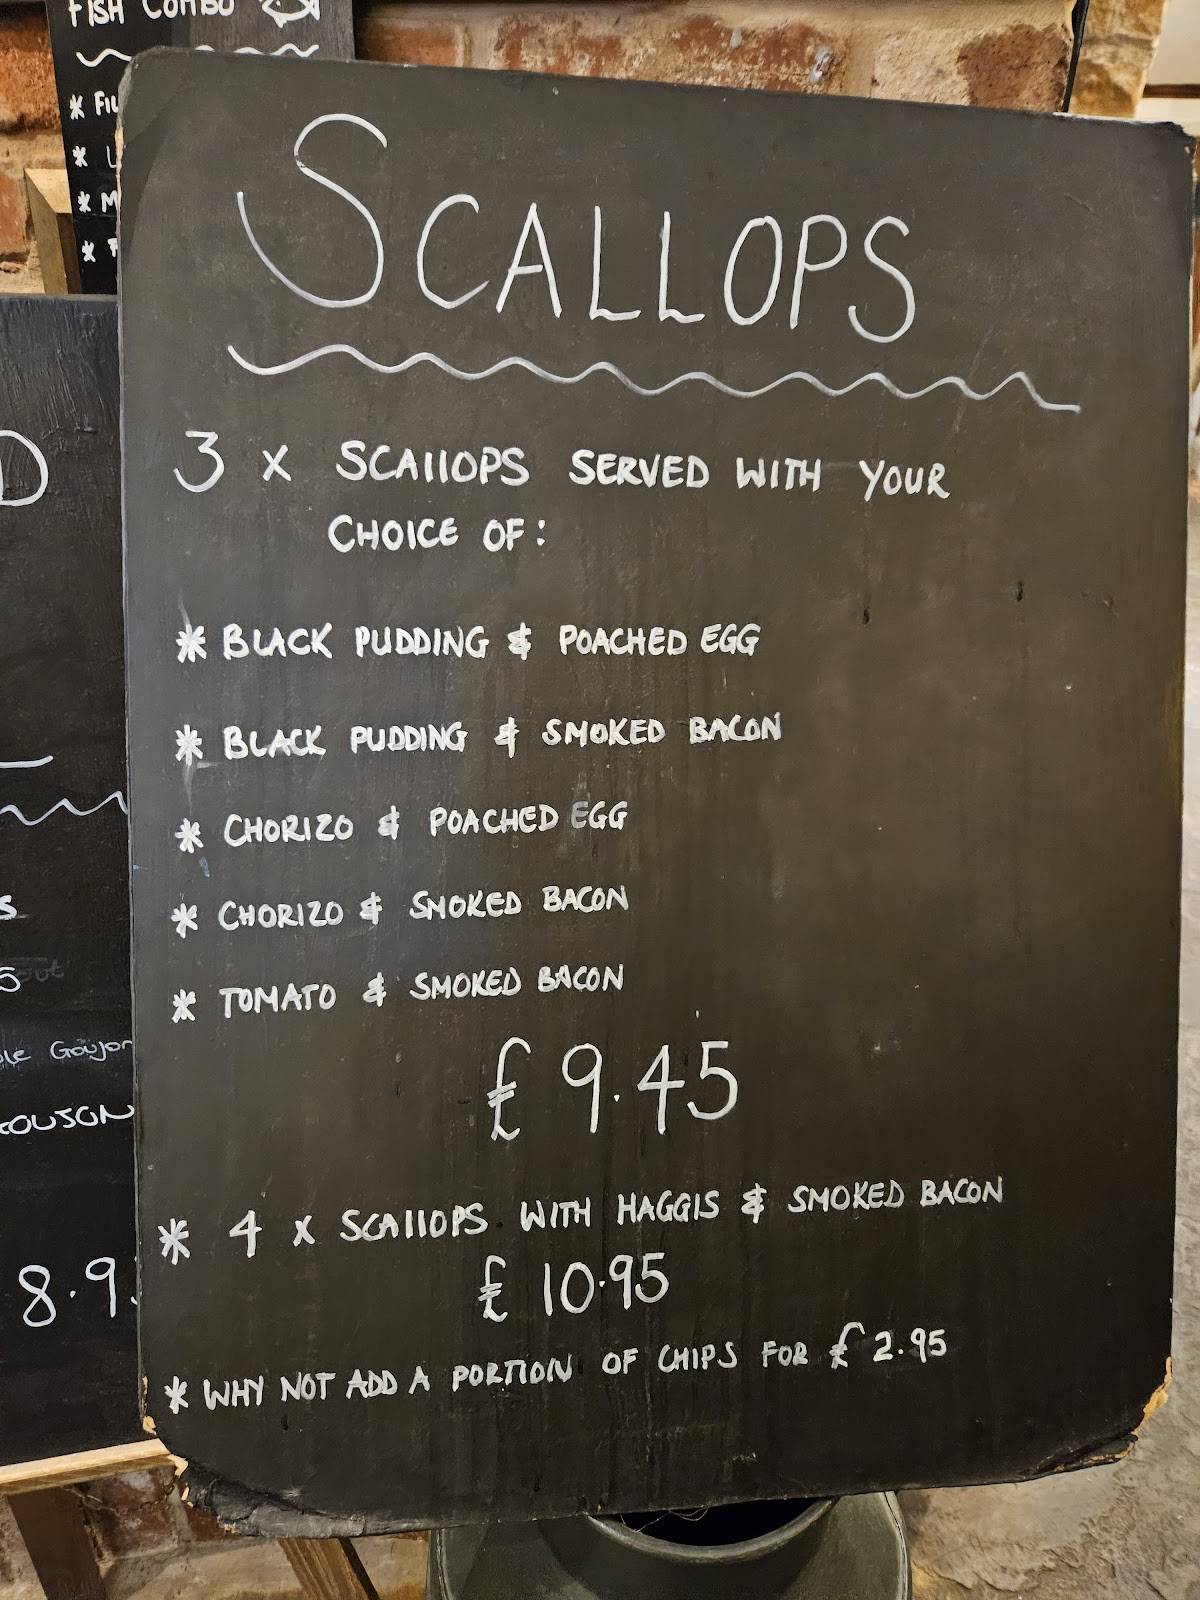 FISH COMBO
SCALLOPS
3 X SCALLOPS SERVED WITH YOUR
CHOICE OF:
* BLACK PUDDING & POACHED EGG
* BLACK PUDDING & SMOKED BACON
* CHORIZO & POACHED EGG
* CHORIZO & SMOKED BACON
* TOMATO & SMOKED BACON
£ 9.45
* 4 X SCALLOPS WITH HAGGIS & SMOKED BACON
£ 10.95
* WHY NOT ADD A PORTION OF CHIPS FOR £ 2.95